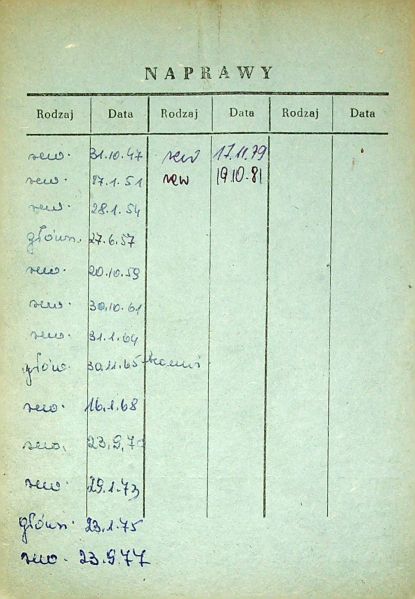 NAPRAWY
Rodzaj Data Rodzaj Data Rodzaj Data
rew. 31.10.47 rew 17.11.79
rew. 17.1.51 rew 19.10.81
rew. 28.1.54
główn. 27.6.57
rew. 20.10.59
rew. 30.10.61
rew. 31.1.64
główn. 30.11.65
rew. 16.1.68
rew. 23.9.7
rew. 29.1.73
główn. 23.1.75
rew. 23.9.77